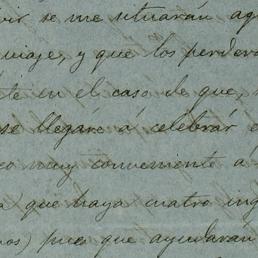 vir se me situarán aq
viaje, y que los perder
te en el caso de que,
se llegare á celebrar
eo muy conveniente á
a que haya cuatro ing
nos) pues que ayudarán